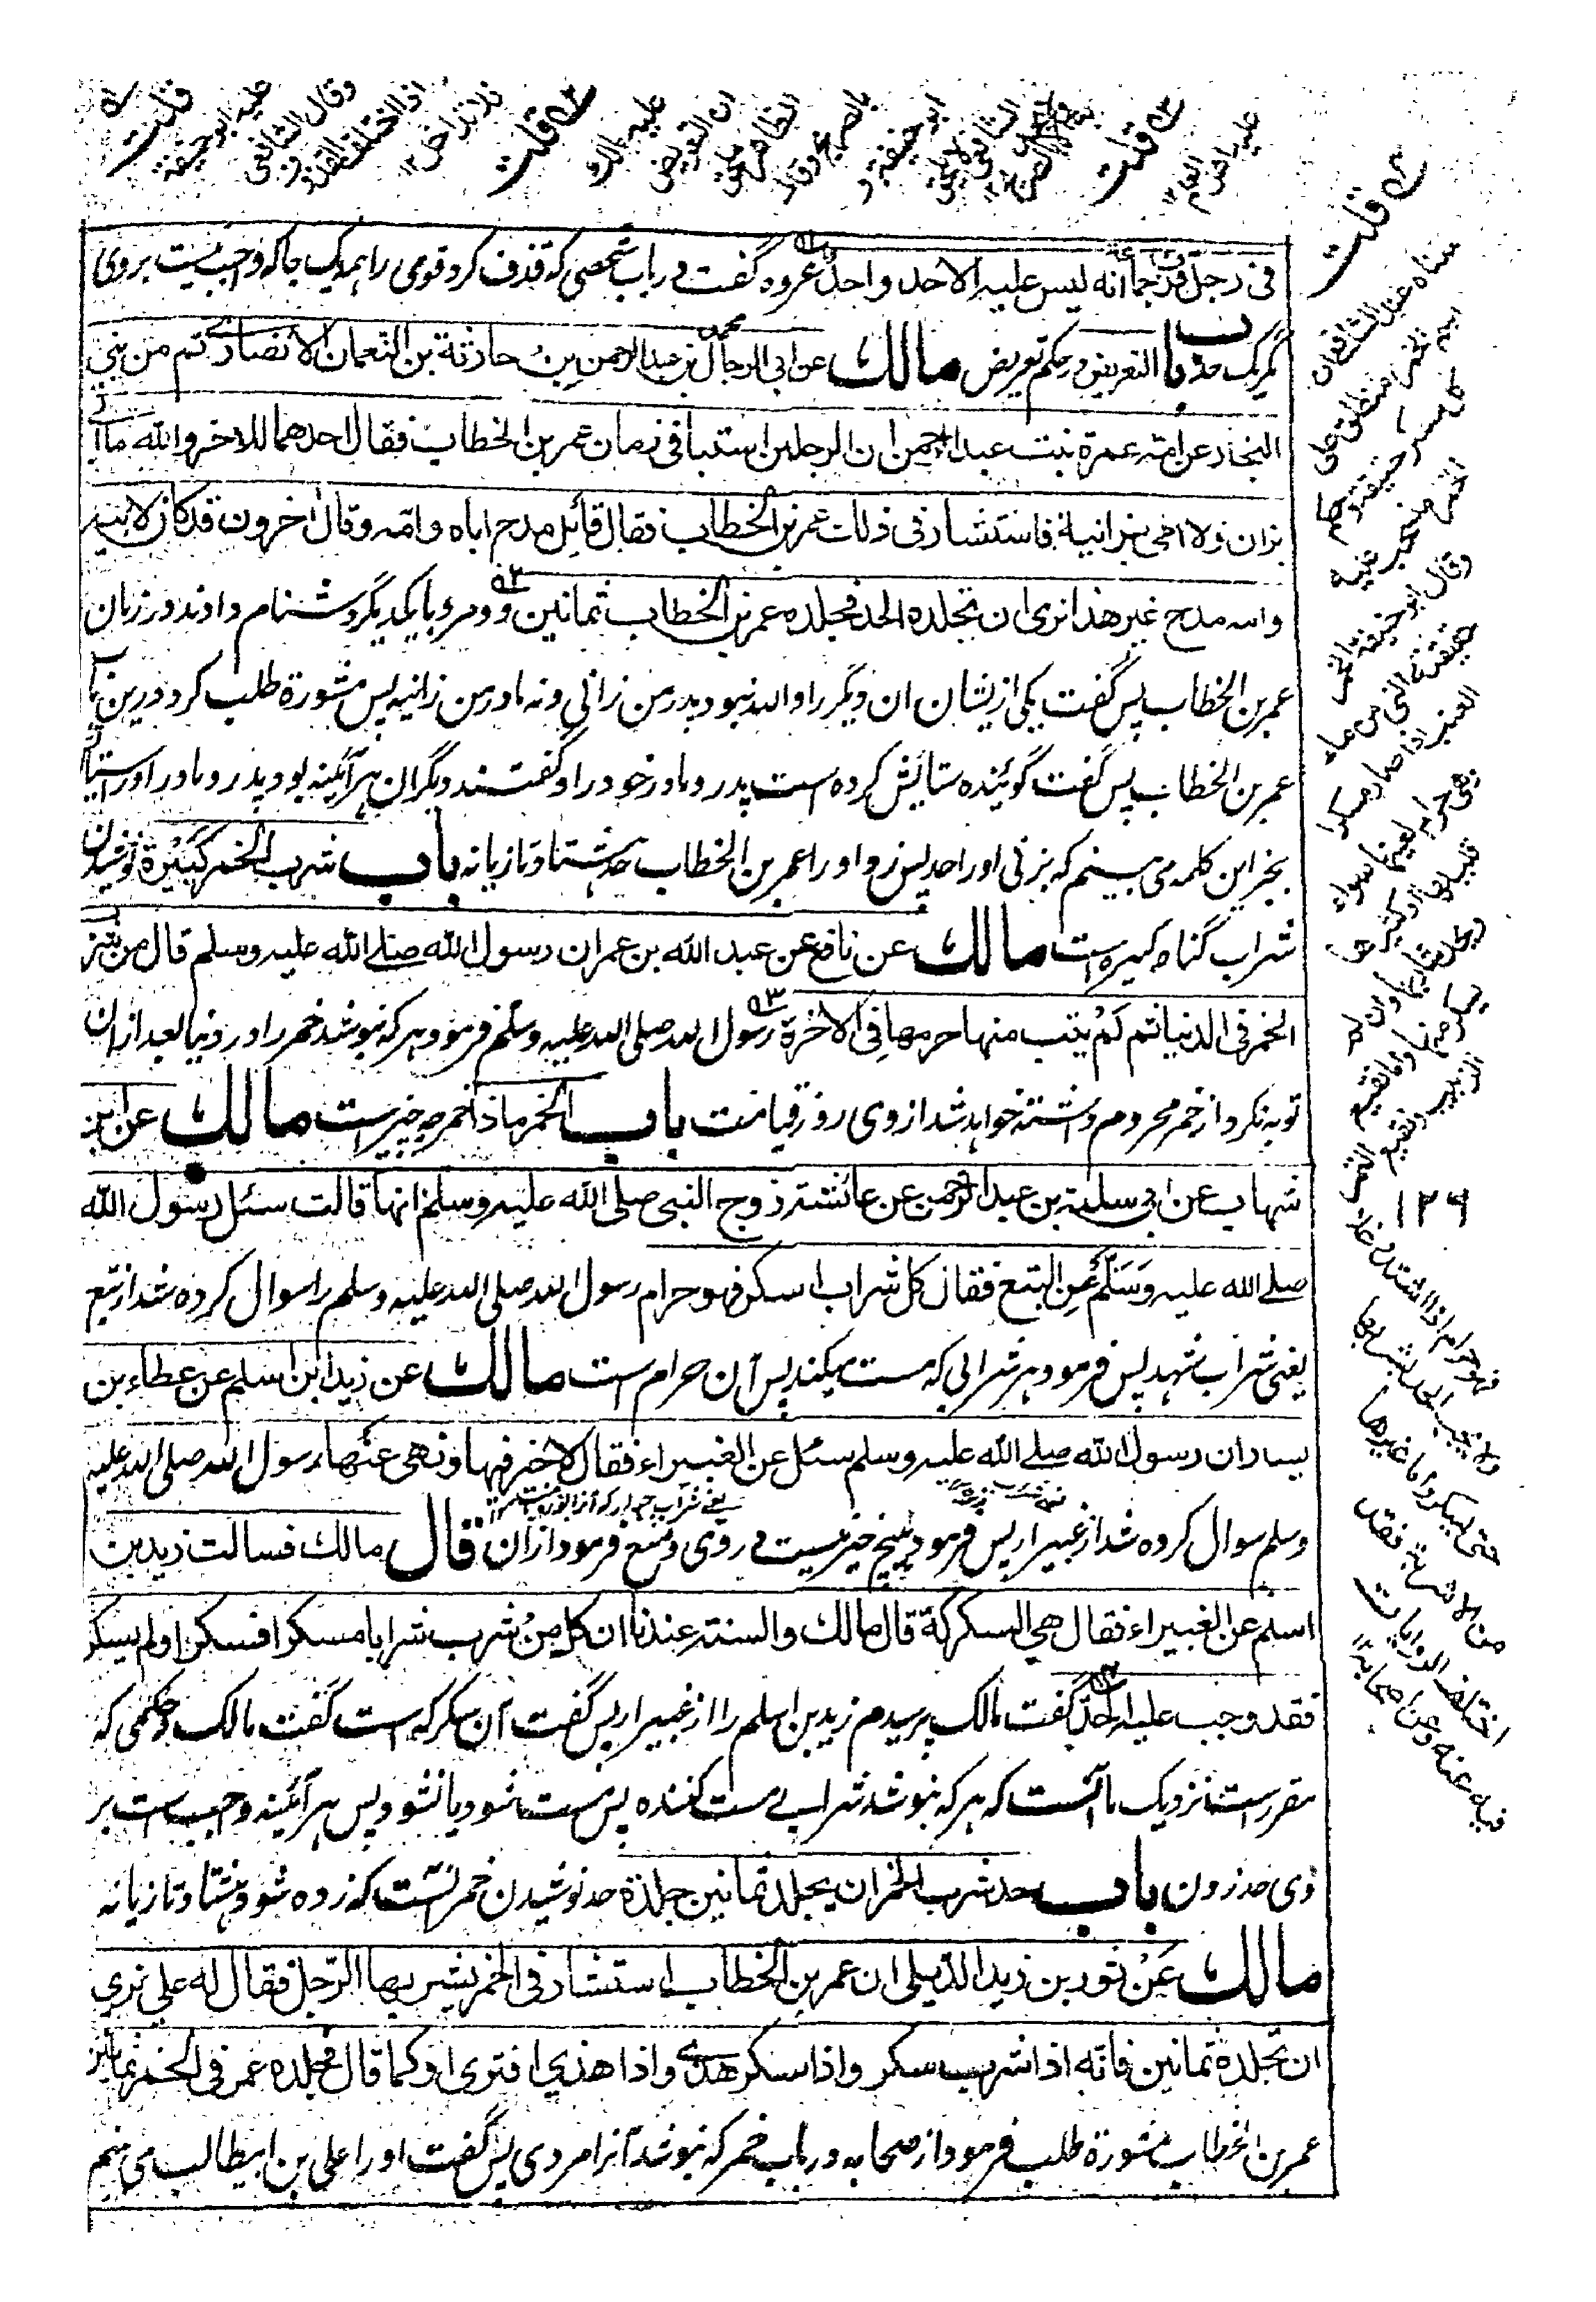 فی رجل قذف جماعة انه لیس علیه الا حد واحد عروه گفت در باب شخصی که قذف کرد قومی را بهمه یک جا که واجب نیست بروی
مگر یک حد باب التعریض در حکم تعریض مالک عن ابی الرجال محمد بن عبد الرحمن بن حارثة بن النعمان الانصاری ثم من بنی
النجار عن امه عمرة بنت عبد الرحمن ان الرجلین استبا فی زمان عمر بن الخطاب فقال احدهما للاخر والله ما ابی
بزان ولا امی بزانیة فاستشار فی ذلك عمر بن الخطاب فقال قائل مدح اباه وامه وقال اخرون قد کان لابیه
وامه مدح غیر هذا نری ان تجلده الحد فجلده عمر بن الخطاب ثمانین دو مرد با یکدیگر دشنام دادند در زمان
عمر بن الخطاب پس گفت یکی از ایشان ان دیگر را والله نبود پدر من زانی و نه مادر من زانیه پس مشورة طلب کرد درین باب
عمر بن الخطاب پس گفت گوئینده ستایش کرده است پدر و مادر خود را و گفتند دیگران هر آئینه بود پدر و مادر او را ستایش
بجز این کلمه می بینم که بزنی او را حد پس زد او را عمر بن الخطاب حد هشتاد تازیانه باب شرب الخمر کبیرة نوشیدن
شراب گناه کبیره است مالک عن نافع عن عبد الله بن عمر ان رسول الله صلے الله علیه وسلم قال من شرب
الخمر فی الدنیا ثم لم یتب منها حرمها فی الاخرة رسول الله صلی الله علیه وسلم فرمود هر که بنوشد خمر را در دنیا بعد ازان
توبه نکرد از خمر محروم داشته خواهد شد از وی روز قیامت باب الخمر ماذا خمر چه چیزست مالک عن ابن
شهاب عن ابی سلمة بن عبد الرحمن عن عائشة زوج النبی صلی الله علیه وسلم انها قالت سئل رسول الله
صلے الله علیه وسلم عن البتع فقال کل شراب اسکر فهو حرام رسول الله صلی الله علیه وسلم را سوال کرده شد از بتع
یعنی شراب شهد پس فرمود هر شرابی که مست میکند پس آن حرام است مالک عن زید ابن اسلم عن عطاء بن
یسار ان رسول الله صلے الله علیه وسلم سئل عن الغبیراء فقال لا خیر فیها ونهی عنها رسول الله صلی الله علیه
وسلم سوال کرده شد از غبیرا پس فرمود هیچ خیر نیست در وی و منع فرمود ازان قال مالك فسالت زید بن
اسلم عن الغبیراء فقال هی السکرکة قال مالك والسنة عندنا ان کل من شرب شرابا مسکرا فسکر او لم یسکر
فقد وجب علیه الحد گفت مالک پرسیدم زید بن اسلم را از غبیرا پس گفت آن سکرکه است گفت مالک و حکمی که
مقررست نزدیک ما آنست که هر که بنوشد شراب مست کننده پس مست شود یا نشود پس هر آئینه واجب است بر
وی حد زدن باب حد شرب الخمر ان یجلد ثمانین جلدة حد نوشیدن خمر آنست که زده شود هشتاد تازیانه
مالک عن ثور بن زید الدیلی ان عمر بن الخطاب استشار فی الخمر یشربها الرجل فقال له علی نری
ان تجلده ثمانین فانه اذا شرب سکر واذا سکر هذی واذا هذی افتری او کما قال فجلده عمر فی الخمر ثمانین
عمر بن الخطاب مشورة طلب فرمود از صحابه در باب خمر که نبوشد آنرا مردی پس گفت او را علی بن ابیطالب می بینم
قلت
علیه ابو حنیفة
وقال الشافعی
قلت
علیه
ان التعریض
ابو حنیفة و
قلت
علیه
قلت
وقال ابو حنیفة الخمر
العنب اذا صار مسکرا
۱۲۹
فهو حرام اذا اشتد
حتی یسکر واما غیرها
من الاشربة فقد
اختلف الروایات
فیه عنه وعن اصحابه